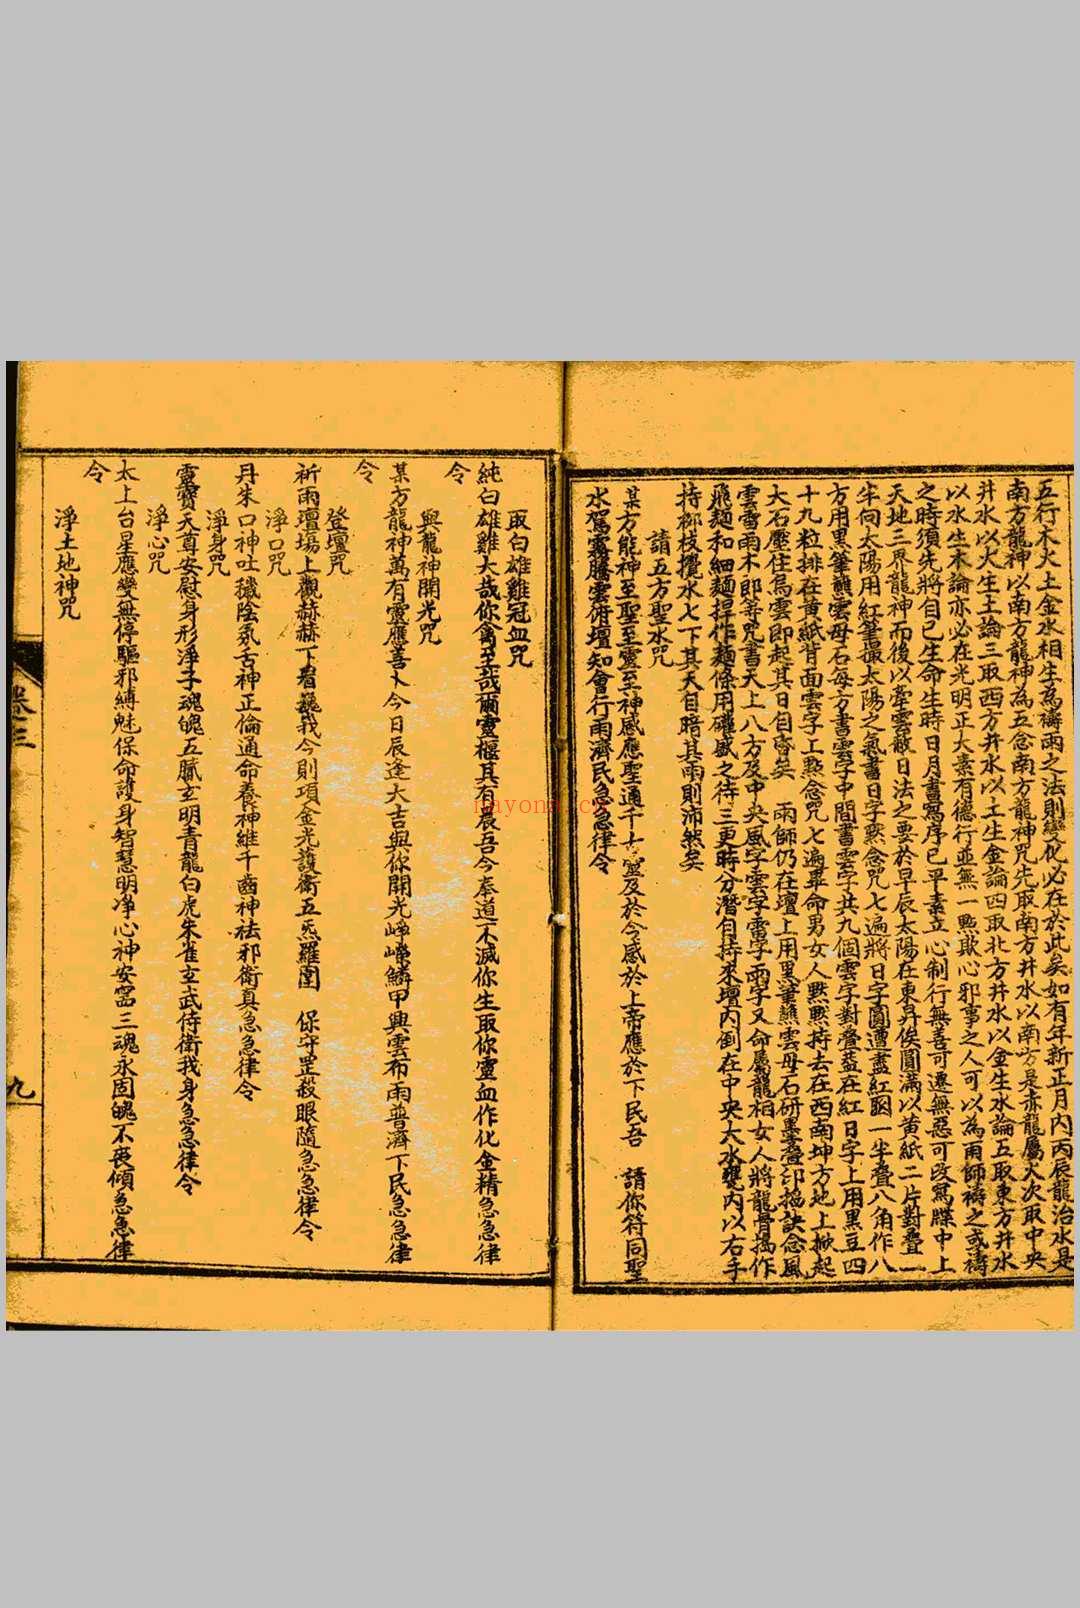 五行木火土金水相生為禱雨之法則變化必在於此矣如有年新正月內丙辰龍治水是
南方龍神以南方龍神為五念南方龍神咒先取南方井水以南方是赤龍屬火次取中央
井水以火生土論三取西方井水以土生金論四取北方井水以金生水論五取東方井水
以水生木論亦必在光明正大素有德行並無一點欺心邪事之人可以為雨師禱之或禱
之時須先將自己生命生時日月書寫序已平素立心制行無善可遷無惡可改寫牒中上
天地三界龍神而後以牽雲散日法之要於早辰太陽在東昇俟圓滿以黃紙二片對疊一
半向太陽用紅筆撮太陽之氣書日字默念咒七遍將日字圓遭盡紅圈一半疊八角作八
方用黑筆蘸雲母石每方書雲字中間書雲字共九個雲字對疊蓋在紅日字上用黑豆四
十九粒排在黃紙背面雲字上默念咒七遍畢命男女人默默持去在西南坤方地上掀起
大石壓住烏雲即起其日自昏矣 雨師仍在壇上用黑筆蘸雲母石研墨疊印搯訣念風
雲雷雨木郎等咒書天上八方及中央風字雲字雷字雨字又命屬龍相女人將龍骨搗作
飛麵和細麵捍作麵條用罐盛之待三更時分潛自持來壇內倒在中央大水甕內以右手
持柳枝攪水七下其天自暗其雨則沛然矣
請五方聖水咒
某方龍神至聖至靈至神感應聖通千古靈及於今感於上帝應於下民吾 請你符同聖
水駕霧騰雲俯壇知會行雨濟民急急律令
取白雄雞冠血咒
純白雄雞大哉你禽至哉爾靈櫃具有晨吾今奉道不滅你生取你靈血作化金精急急律
令
與龍神開光咒
某方龍神萬有靈應善卜今日辰逢大吉與你開光崢嶸鱗甲興雲布雨普濟下民急急律
令
登壇咒
祈雨壇場上觀赫赫下看巍巍我今則項金光護衛五炁羅圍 保守罡殺眼隨急急律令
淨口咒
丹朱口神吐穢陰氛舌神正倫通命養神維千齒神祛邪衛真急急律令
淨身咒
靈寶天尊安慰身形淨子魂魄五臟玄明青龍白虎朱雀玄武侍衛我身急急律令
淨心咒
太上台星應變無停驅邪縛魅保命護身智慧明淨心神安寧三魂永固魄不喪傾急急律
令
淨土地神咒
卷三
九